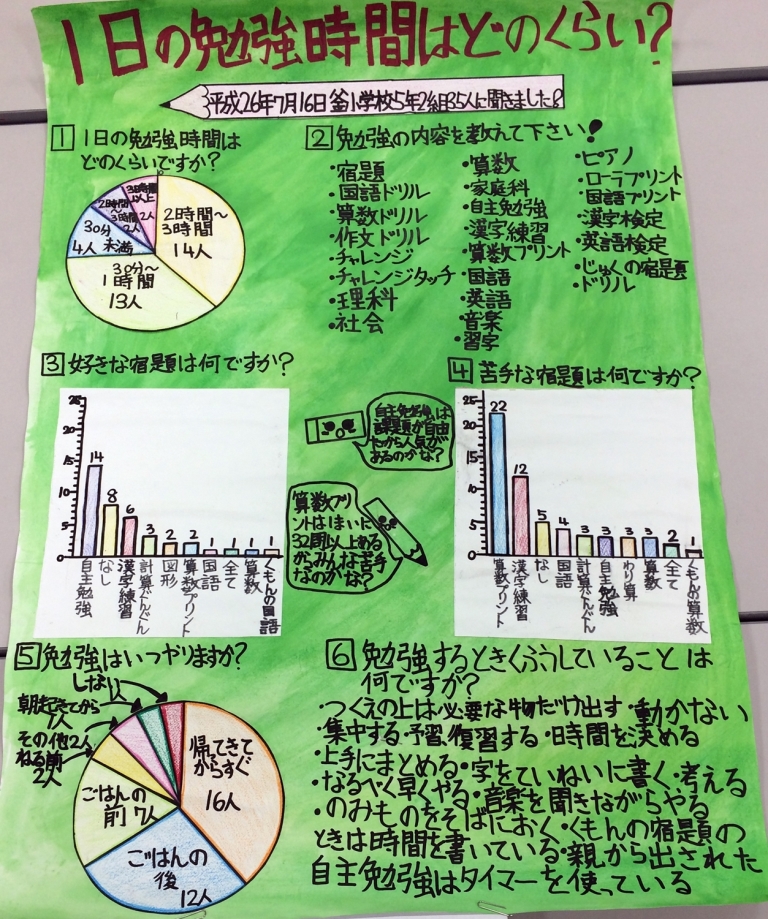 1日の勉強時間はどのくらい?
平成26年7月16日 釜小学校5年2組35人に聞きました!
1 1日の勉強時間は
どのくらいですか?
2時間〜
3時間
14人
30分〜
1時間
13人
30分
未満
4人
2時間〜
3時間
2人
3時間
以上
2人
2 勉強の内容を教えて下さい!
・宿題
・国語ドリル
・算数ドリル
・作文ドリル
・チャレンジ
・チャレンジタッチ
・理科
・社会
・算数
・家庭科
・自主勉強
・漢字練習
・算数プリント
・国語
・英語
・音楽
・習字
・ピアノ
・ローラプリント
・国語プリント
・漢字検定
・英語検定
・じゅくの宿題
・ドリル
3 好きな宿題は何ですか?
25
20
15
10
5
0
14
8
6
3
2
2
1
1
1
1
自主勉強
なし
漢字練習
計算ぐんぐん
図形
算数プリント
国語
全て
算数
くもんの国語
自主勉強は
課題が自由
だから人気が
あるのかな?
算数プリ
ントはほいに
32問以上ある
からみんな苦手
なのかな?
4 苦手な宿題は何ですか?
25
20
15
10
5
0
22
12
5
4
3
3
3
3
2
1
算数プリント
漢字練習
なし
国語
計算ぐんぐん
自主勉強
わり算
算数
全て
くもんの算数
5 勉強はいつやりますか?
しない
1人
朝起きてから
1人
その他2人
ねる前
2人
ごはんの
前 7人
ごはんの
後
12人
帰ってきて
からすぐ
16人
6 勉強するときくふうしていることは
何ですか?
・つくえの上は必要な物だけ出す・動かない
・集中する・予習、復習する・時間を決める
・上手にまとめる・字をていねいに書く・考える
・なるべく早くやる・音楽を聞きながらやる
・のみものをそばにおく・くもんの宿題の
ときは時間を書いている・親から出された
自主勉強はタイマーを使っている